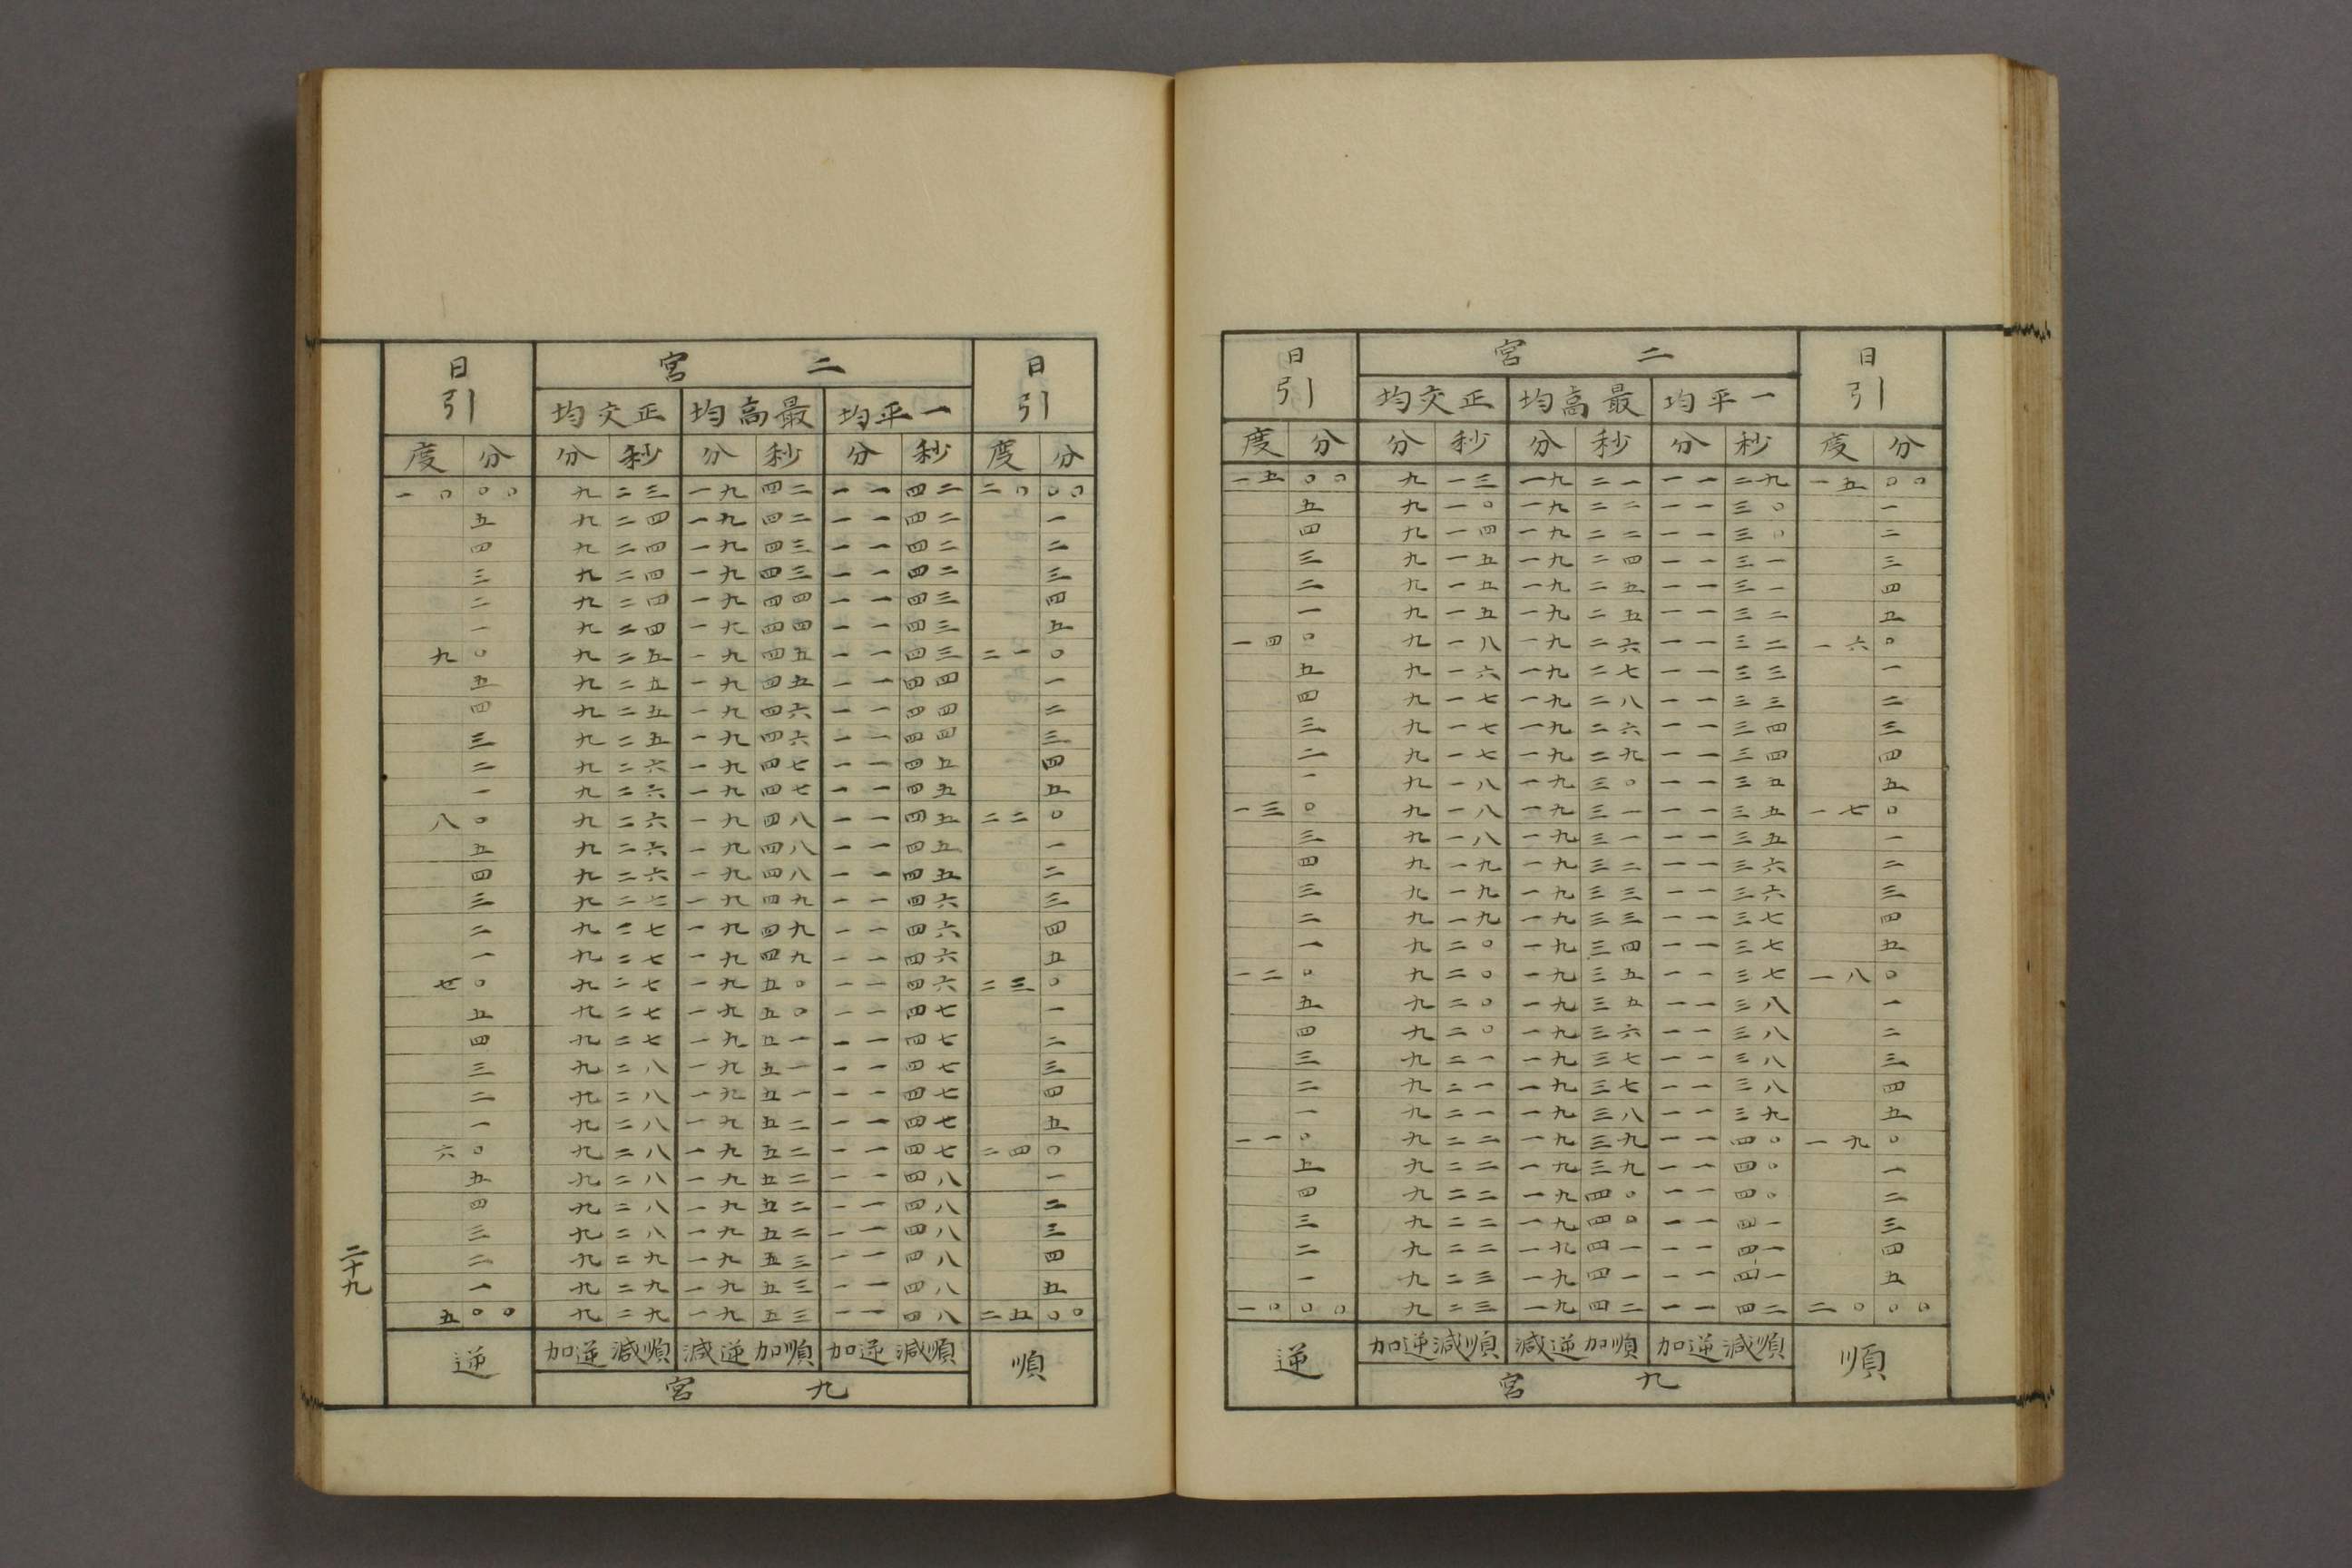 日引 二宮 日引
正交均 最高均 一平均
度 分 分 秒 分 秒 分 秒 度 分
一五 〇〇 九 一三 一九 二一 一一 二九 一五 〇〇
五 九 一〇 一九 二二 一一 三〇 一
四 九 一四 一九 二二 一一 三〇 二
三 九 一五 一九 二四 一一 三一 三
二 九 一五 一九 二五 一一 三一 四
一 九 一五 一九 二五 一一 三二 五
一四 〇 九 一八 一九 二六 一一 三二 一六 〇
五 九 一六 一九 二七 一一 三三 一
四 九 一七 一九 二八 一一 三三 二
三 九 一七 一九 二六 一一 三四 三
二 九 一七 一九 二九 一一 三四 四
一 九 一八 一九 三〇 一一 三五 五
一三 〇 九 一八 一九 三一 一一 三五 一七 〇
三 九 一八 一九 三一 一一 三五 一
四 九 一九 一九 三二 一一 三六 二
三 九 一九 一九 三三 一一 三六 三
二 九 一九 一九 三三 一一 三七 四
一 九 二〇 一九 三四 一一 三七 五
一二 〇 九 二〇 一九 三五 一一 三七 一八 〇
五 九 二〇 一九 三五 一一 三八 一
四 九 二〇 一九 三六 一一 三八 二
三 九 二一 一九 三七 一一 三八 三
二 九 二一 一九 三七 一一 三八 四
一 九 二一 一九 三八 一一 三九 五
一一 〇 九 二二 一九 三九 一一 四〇 一九 〇
五 九 二二 一九 三九 一一 四〇 一
四 九 二二 一九 四〇 一一 四〇 二
三 九 二二 一九 四〇 一一 四一 三
二 九 二二 一九 四一 一一 四一 四
一 九 二三 一九 四一 一一 四一 五
一〇 〇〇 九 二三 一九 四二 一一 四二 二〇 〇〇
逆 順減逆加 順加逆減 順減逆加 順
九宮
日引 二宮 日引
正交均 最高均 一平均
度 分 分 秒 分 秒 分 秒 度 分
一〇 〇〇 九 二三 一九 四二 一一 四二 二〇 〇〇
五 九 二四 一九 四二 一一 四二 一
四 九 二四 一九 四三 一一 四二 二
三 九 二四 一九 四三 一一 四二 三
二 九 二四 一九 四四 一一 四三 四
一 九 二四 一九 四四 一一 四三 五
九 〇 九 二五 一九 四五 一一 四三 二一 〇
五 九 二五 一九 四五 一一 四四 一
四 九 二五 一九 四六 一一 四四 二
三 九 二五 一九 四六 一一 四四 三
二 九 二六 一九 四七 一一 四五 四
一 九 二六 一九 四七 一一 四五 五
八 〇 九 二六 一九 四八 一一 四五 二二 〇
五 九 二六 一九 四八 一一 四五 一
四 九 二六 一九 四八 一一 四五 二
三 九 二七 一九 四九 一一 四六 三
二 九 二七 一九 四九 一一 四六 四
一 九 二七 一九 四九 一一 四六 五
七 〇 九 二七 一九 五〇 一一 四六 二三 〇
五 九 二七 一九 五〇 一一 四七 一
四 九 二七 一九 五一 一一 四七 二
三 九 二八 一九 五一 一一 四七 三
二 九 二八 一九 五一 一一 四七 四
一 九 二八 一九 五二 一一 四七 五
六 〇 九 二八 一九 五二 一一 四七 二四 〇
五 九 二八 一九 五二 一一 四八 一
四 九 二八 一九 五二 一一 四八 二
三 九 二八 一九 五二 一一 四八 三
二 九 二九 一九 五三 一一 四八 四
一 九 二九 一九 五三 一一 四八 五
五 〇〇 九 二九 一九 五三 一一 四八 二五 〇〇
逆 順減逆加 順加逆減 順減逆加 順
九宮
二十九